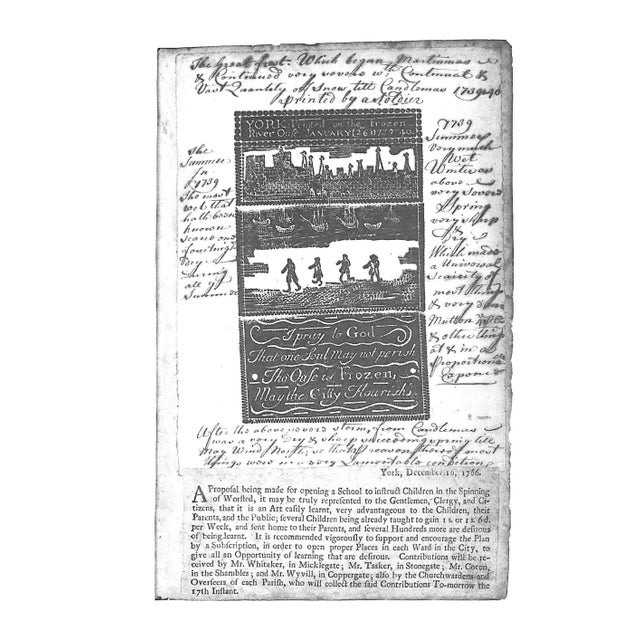 The Great frost. Which began Martinmas
& Continued very severe wth Continual &
Vast Quantity of Snow, till Candlemas 1739-40
printed by a Soldier
YORK Printed on the frozen
River Ouse JANUARY (26) 1739 40
The
Summer
In
1739
The most
wet that
hath been
known
scarce one
fourtnight
Dry
during
all ye
Summer
1739
Summer
very much
Wet
Winter as
above
very severe
Spring
very sharp
&
Dry
Which made
a Universal
Scarcity of
most things
& very dear
Mutton
& other things
at & in a
Proportionable
I pray to God
That one Soul May not perish
Tho Ouse is Frozen,
May the Citty Flourish
After the above severe storm, from Candlemas
was a very Dry & sharp succeeding spring till
May Wind North; so that reason there of most
things were in a very Lamentable condition,
York, December 10, 1786.
A Proposal being made for opening a School to instruct Children in the Spinning
of Worsted, it may be truly represented to the Gentlemen, Clergy, and Ci-
tizens, that it is an Art easily learnt, very advantageous to the Children, their
Parents, and the Public; several Children being already taught to gain 1 s. or 1 s. 6 d.
per Week, and sent home to their Parents, and several Hundreds more are desirous
of being learnt. It is recommended vigorously to support and encourage the Plan
by a Subscription, in order to open proper Places in each Ward in the City, to
give all an Opportunity of learning that are desirous. Contributions will be re-
ceived by Mr. Whitaker, in Micklegate; Mr. Tasker, in Stonegate; Mr. Coton,
in the Shambles; and Mr. Wyvill, in Coppergate; also by the Churchwardens and
Overseers of each Parish, who will collect the said Contributions To-morrow the
17th Instant.